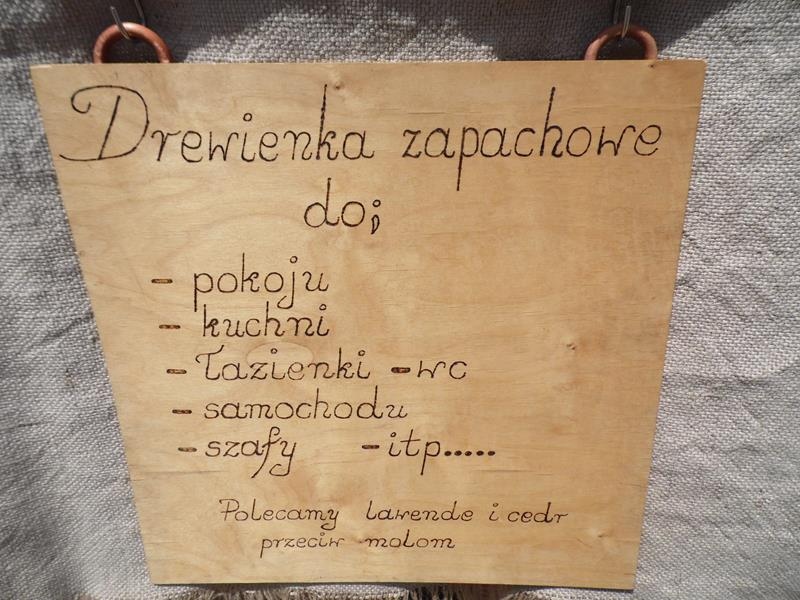 Drewienka zapachowe
do;
- pokoju
- kuchni
- Łazienki - wc
- samochodu
- szafy - itp.....
Polecamy lawende i cedr
przeciw molom